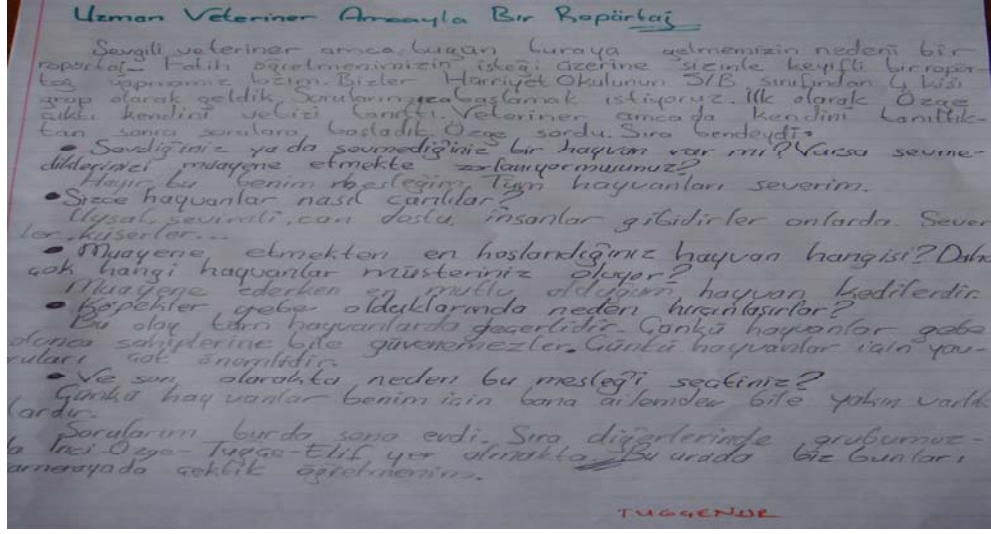 Uzman Veteriner Amcayla Bir Ropörtaj
Sevgili veteriner amca, bugün buraya gelmemizin nedeni bir
roportaj. Fatih öğretmenimizin isteği üzerine sizinle keyifli bir ropör-
taj yapmamız lazım. Bizler Hürriyet Okulunun 5/B sınıfından 4 kişi
grup olarak geldik. başlamak istiyoruz. İlk olarak Özge
çıktı kendini ve bizi tanıttı. Veteriner amca da kendini tanıttık-
tan sonra sorulara başladık. Özge sordu. Sıra bendeydi.
• Sevdiğiniz ya da sevmediğiniz bir hayvan var mı? Varsa sevme-
diklerinizi muayene etmekte zorlanıyormusunuz?
Hayır bu benim mesleğim. Tüm hayvanları severim.
• Sizce hayvanlar nasıl canlılar?
Uysal, sevimli, can dostu, insanlar gibidirler onlarda. Sever
ler, küserler...
• Muayene etmekten en hoşlandığınız hayvan hangisi? Daha
çok hangi hayvanlar müşteriniz oluyor?
Muayene ederken en mutlu olduğum hayvan kedilerdir.
• Köpekler gebe olduklarında neden hırçınlaşırlar?
Bu olay tüm hayvanlarda geçerlidir. Çünkü hayvanlar gebe
olunca sahiplerine bile güvenemezler. Çünkü hayvanlar için yav-
ruları çok önemlidir.
• Ve son olarakta neden bu mesleği seçtiniz?
Çünkü hayvanlar benim için bana ailemden bile yakın varlık
lardır.
Sorularım burda sona erdi. Sıra diğerlerinde grubumuz-
da İnci Özge-Tuğçe-Elif yer almakta. Bu arada biz bunları
kamerayada çektik öğretmenim.
TUĞÇENUR